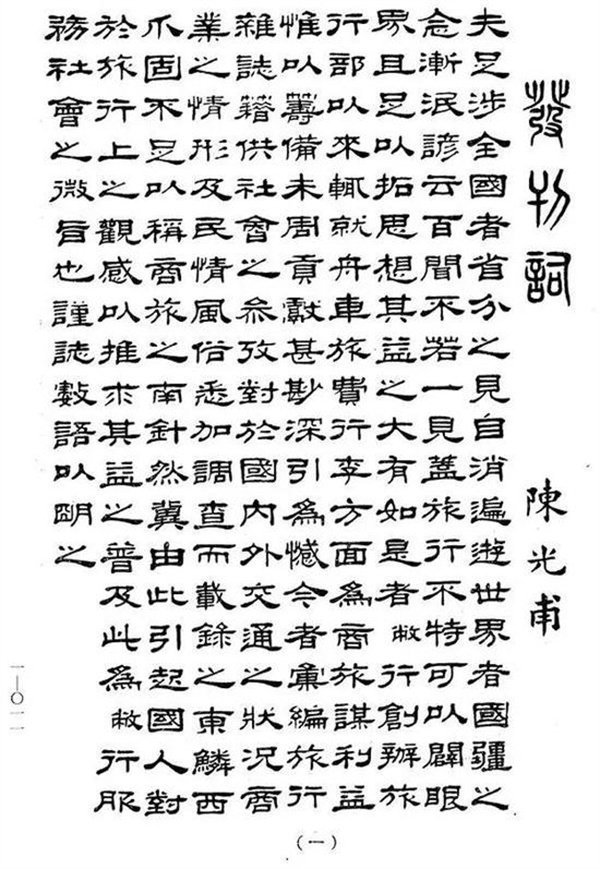 發刊詞
陳光甫
夫足涉全國者省分之見自消遍遊世界者國疆之
念漸泯諺云百聞不若一見蓋旅行不特可以闢眼
界且足以拓思想其益之大有如是者敝行創辦旅
行部以來輒就舟車旅費行李方面為商旅謀利益
惟以籌備未周貢獻甚尠深引為憾今者彙編旅行
雜誌藉供社會之參攷對於國內外交通之狀況商
業之情形及民情風俗悉加調查而載錄之東鱗西
爪固不足以稱商旅之南針然冀由此引起國人對
於旅行上之觀感以推求其益之普及此為敝行服
務社會之微旨也謹誌數語以明之
一—〇一一
(一)